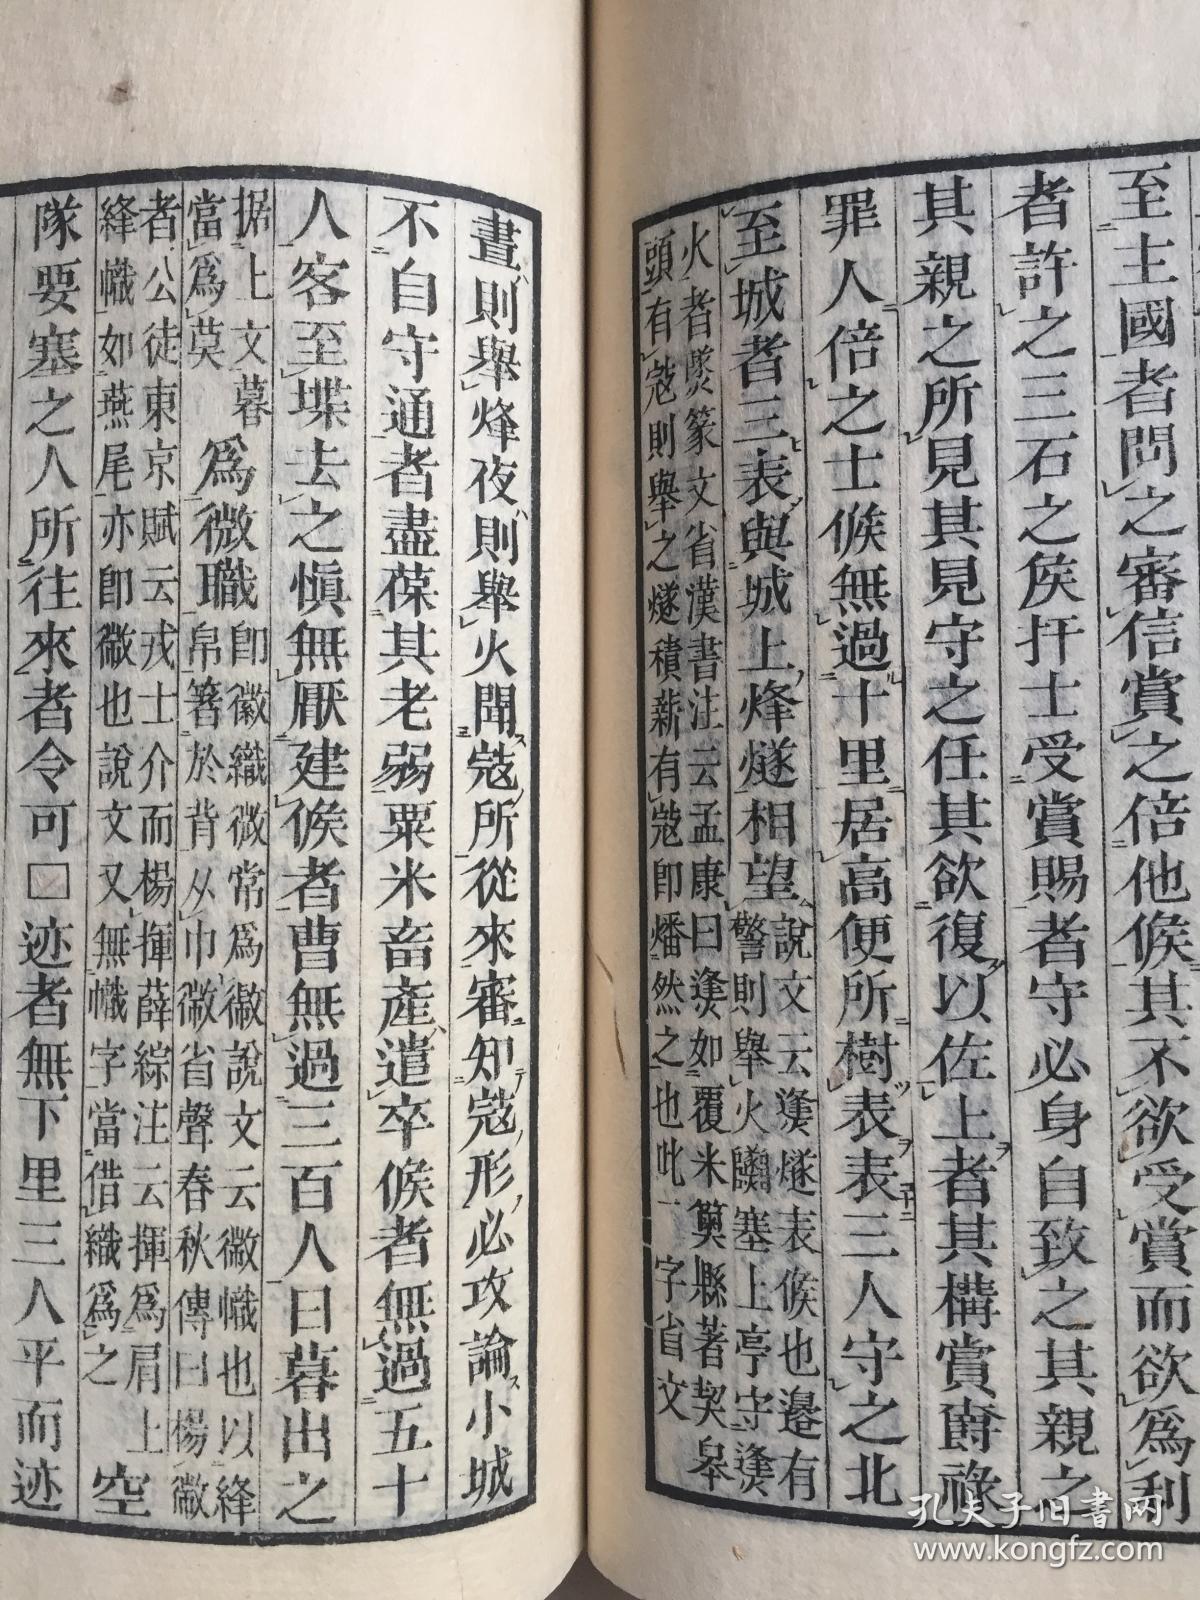 至主國者問之審信賞之倍他候其不欲受賞而欲爲利
者許之三石之侯扞士受賞賜者守必身自致之其親之
其親之所見其見守之任其欲復以佐上者其構賞爵祿
罪人倍之士候無過十里居高便所樹表表三人守之北
至城者三表與城上烽燧相望
說文云㷭燧表候也邊有
警則舉火䥨塞上亭守㷭
火者㸂篆文省漢書注云孟康曰㷭如覆米籅縣著契皋
頭有寇則舉之燧積薪有寇即燔然之也此一字省文
晝則舉烽夜則舉火聞寇所從來審知寇形必攻論小城
不自守通者盡葆其老弱粟米畜產遣卒候者無過五十
人客至堞去之愼無厭建候者曹無過三百人日暮出之
据上文暮
當爲莫
爲微職
即徽織微常爲徽說文云徽幟也以絳
帛箸於背从巾微省聲春秋傳曰楊徽
者公徒東京賦云戎士介而楊揮薛綜注云揮爲肩上
絳幟如燕尾亦即徽也說文又無幟字當借織爲之
空
隊要塞之人所往來者令可□迹者無下里三人平而迹
孔夫子旧書网
www.kongfz.com